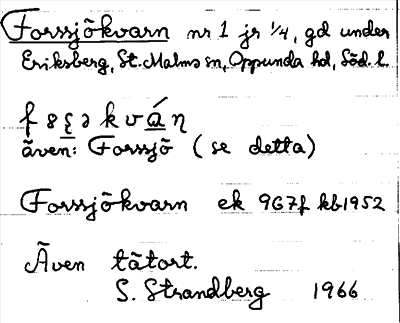 Forssjökvarn nr 1 jr 1/4, gd under
Eriksberg, St. Malms sn, Oppunda hd, Söd. l.
även: Forssjö (se detta)
Forssjökvarn ek 9G7f kb1952
Även tätort.
S. Strandberg 1966